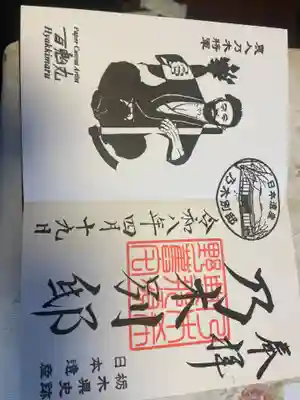 農人乃木将軍
Paper Cutout Artist
百鬼丸
Hyakkimaru
日本遺産
乃木別邸
奉拝
乃木別邸
令和八年四月十九日
栃木県史跡
日本遺産